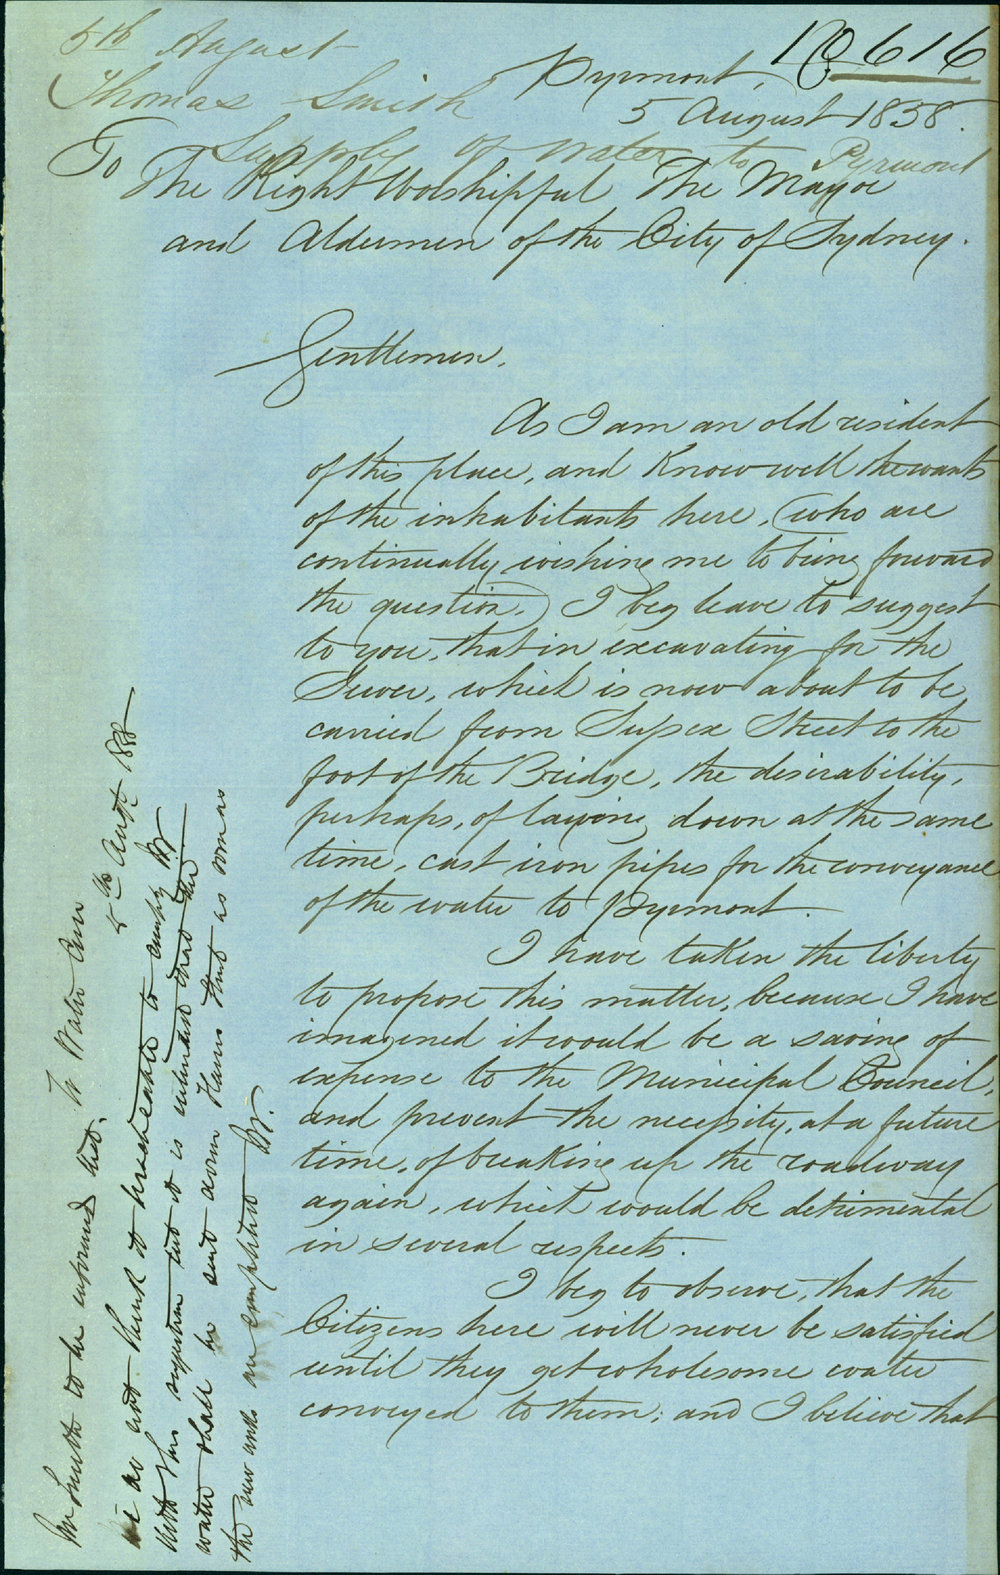 No 616
5th August
Thomas Smith
Supply of water to Pyrmont
Pyrmont,
5 August 1858.
To
The Right Worshipful The Mayor
and Aldermen of the City of Sydney.
Gentlemen,
As I am an old resident
of this place, and know well the wants
of the inhabitants here, (who are
continually wishing me to bring forward
the question,) I beg leave to suggest
to you, that in excavating for the
Sewer, which is now about to be
carried from Sussex Street to the
foot of the Bridge, the desirability,
perhaps, of laying down at the same
time, cast iron pipes for the conveyance
of the water to Pyrmont.
I have taken the liberty
to propose this matter, because I have
imagined it would be a saving of
expense to the Municipal Council,
and prevent the necessity, at a future
time, of breaking up the roadway
again, which would be detrimental
in several respects.
I beg to observe, that the
Citizens here will never be satisfied
until they get wholesome water
conveyed to them; and I believe that
Mr Smith to be informed that. To Water Com
5th Augt 1858
we do not think it practicable to comply
with his suggestion but it is intended that the
water shall be sent down there as soon as
the new works are completed